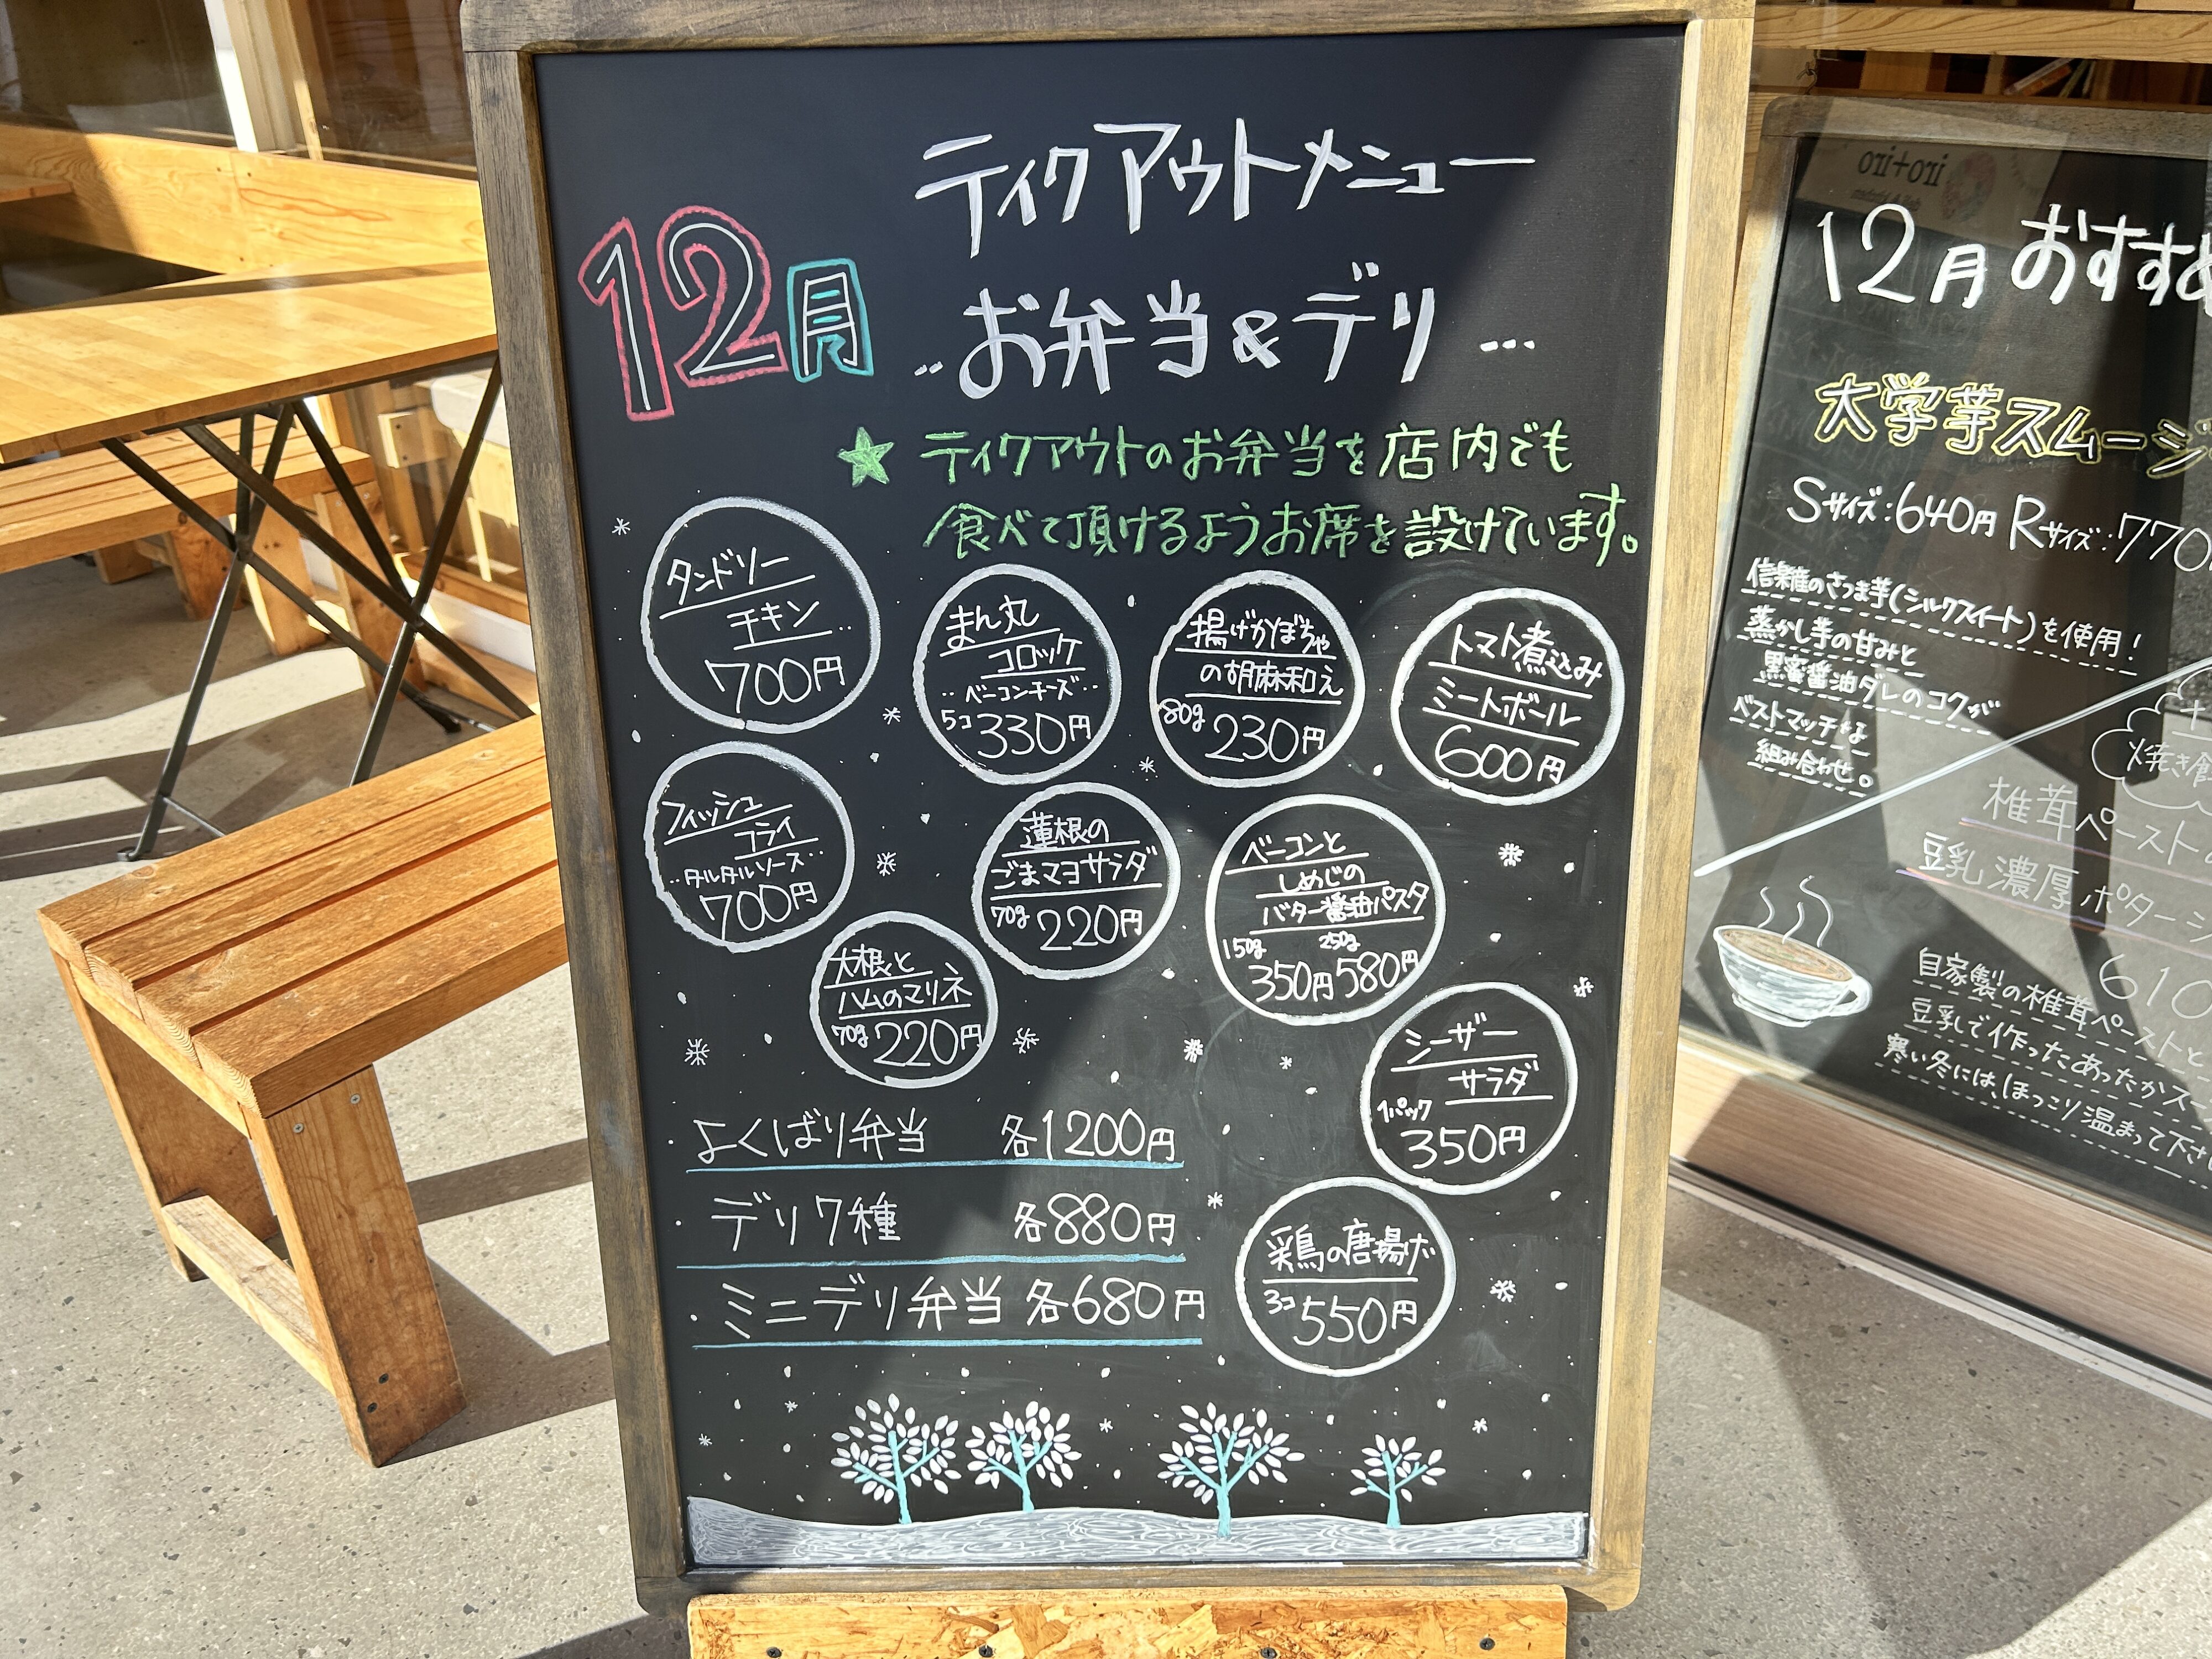 12月
テイクアウトメニュー
‥お弁当&デリ…
★ テイクアウトのお弁当を店内でも
食べて頂けるようお席を設けています。
タンドリー
チキン‥
700円
まん丸
コロッケ
‥ベーコンチーズ‥
5コ 330円
揚げかぼちゃ
の胡麻和え
80g 230円
トマト煮込み
ミートボール
600円
フィッシュ
フライ
‥タルタルソース‥
700円
蓮根の
ごまマヨサラダ
70g 220円
ベーコンと
しめじの
バター醤油パスタ
150g 250g
350円 580円
大根と
ハムのマリネ
70g 220円
シーザー
サラダ
1パック
350円
・よくばり弁当 各1200円
・デリ7種 各880円
・ミニデリ弁当 各680円
鶏の唐揚げ
3コ 550円
iro+iro
12月 おすすめ
大学芋スムージ
Sサイズ:640円 Rサイズ:770
信州産のさつま芋(シルクスイート)を使用!
蒸かし芋の甘みと
黒蜜醤油ダレのコクが
ベストマッチな
組み合わせ。
焼き
椎茸ペースト
豆乳濃厚ポタージ
610
自家製の椎茸ペーストと
豆乳で作ったあったかス
寒い冬には、ほっこり温まって下さ